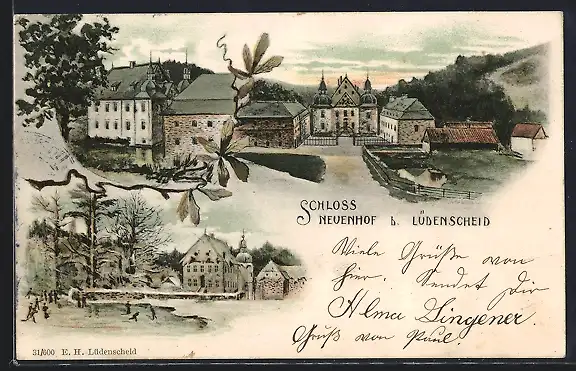 SCHLOSS
NEUENHOF b. LÜDENSCHEID
Viele Grüße von
hier. Sendet Dir
Alma Lingener.
Gruß von Paul.
31/600 E. H. Lüdenscheid